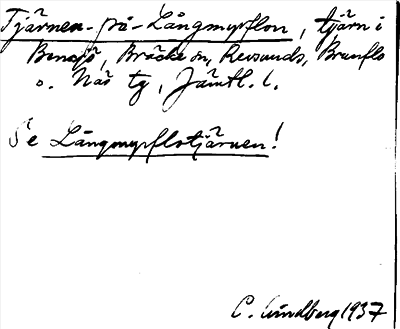 Tjärnen-på-Långmyrflon, tjärn i
Bensjö, Bräcke sn, Revsunds, Brunflo
o. Näs tg, Jämtl. l.
Se Långmyrflotjärnen!
C. Lindberg 1937